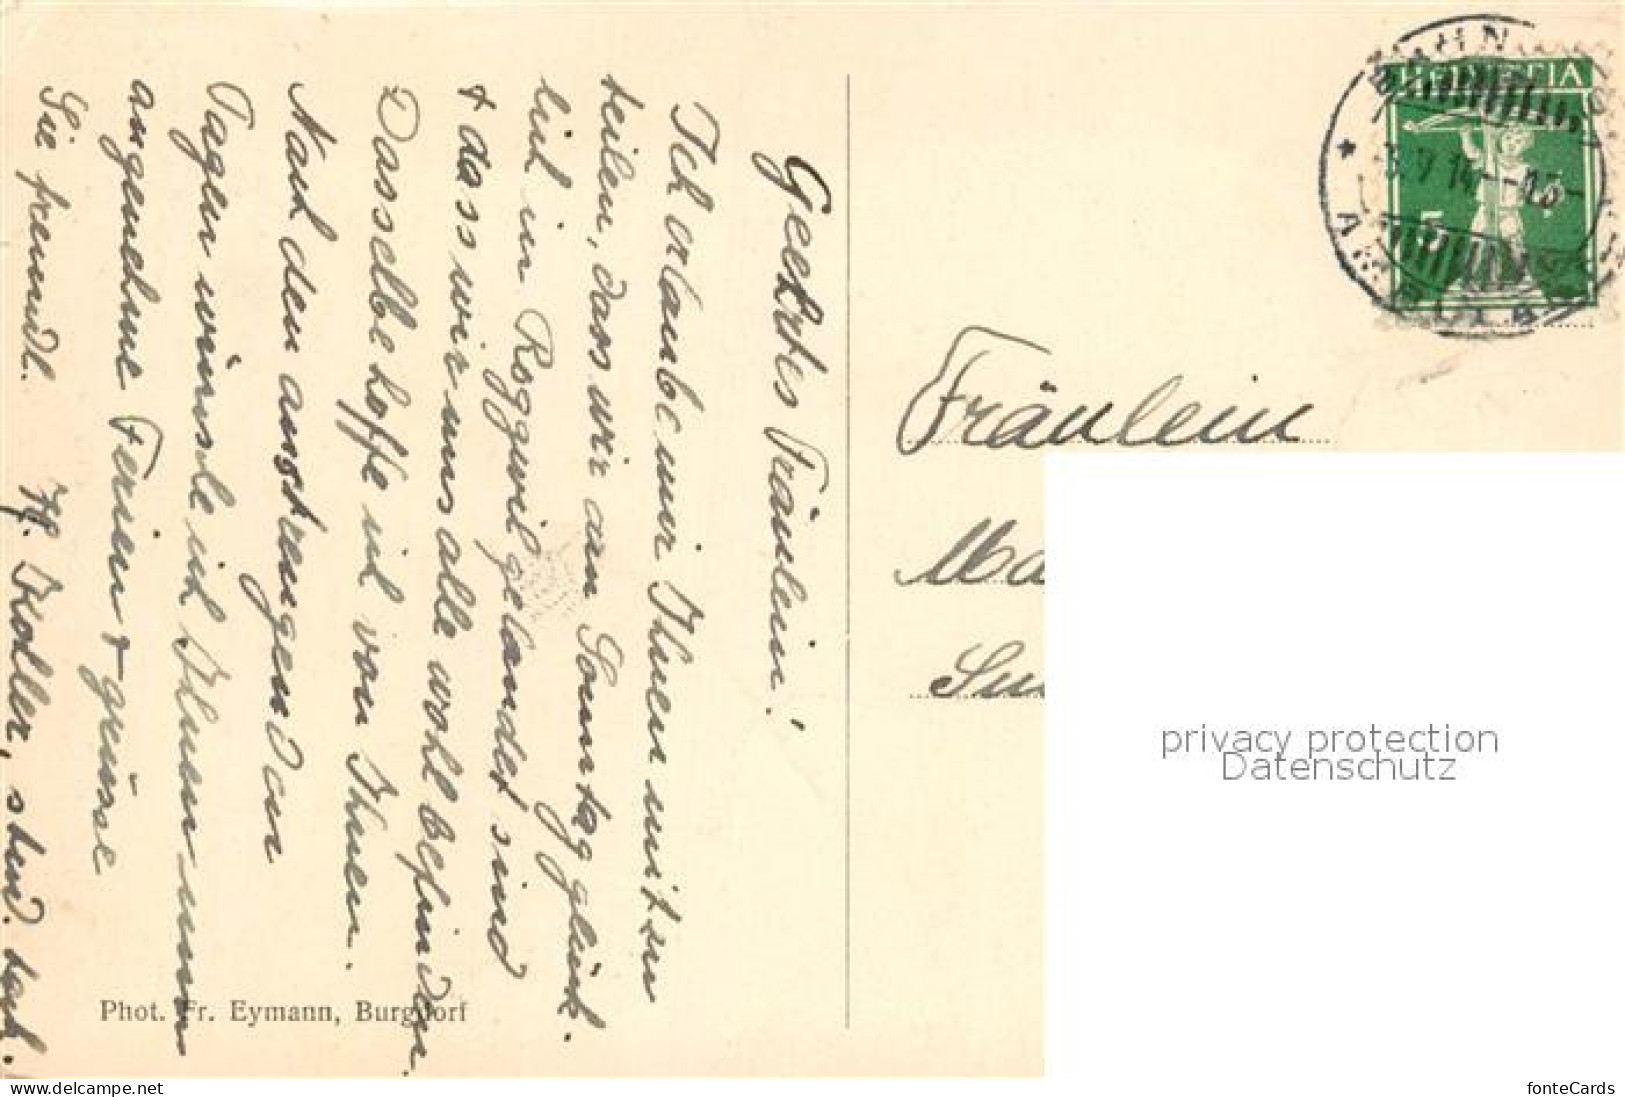 Geehrtes Fräulein!
Ich erlaube mir Ihnen mitzu
teilen, dass wir am Sonntag glück-
lich in Roggwil gelandet sind
+ dass wir uns alle wohl befinden.
Dasselbe hoffe ich von Ihnen.
Nach den anstrengenden
Tagen wünsche ich Ihnen nun
angenehme Ferien + grüsse
Sie freundl. Hs. Kohler, stud. tech.
Phot. Fr. Eymann, Burgdorf
HELVETIA
5
Fräulein
Ma
privacy protection
Datenschutz
www.delcampe.net
fonteCards